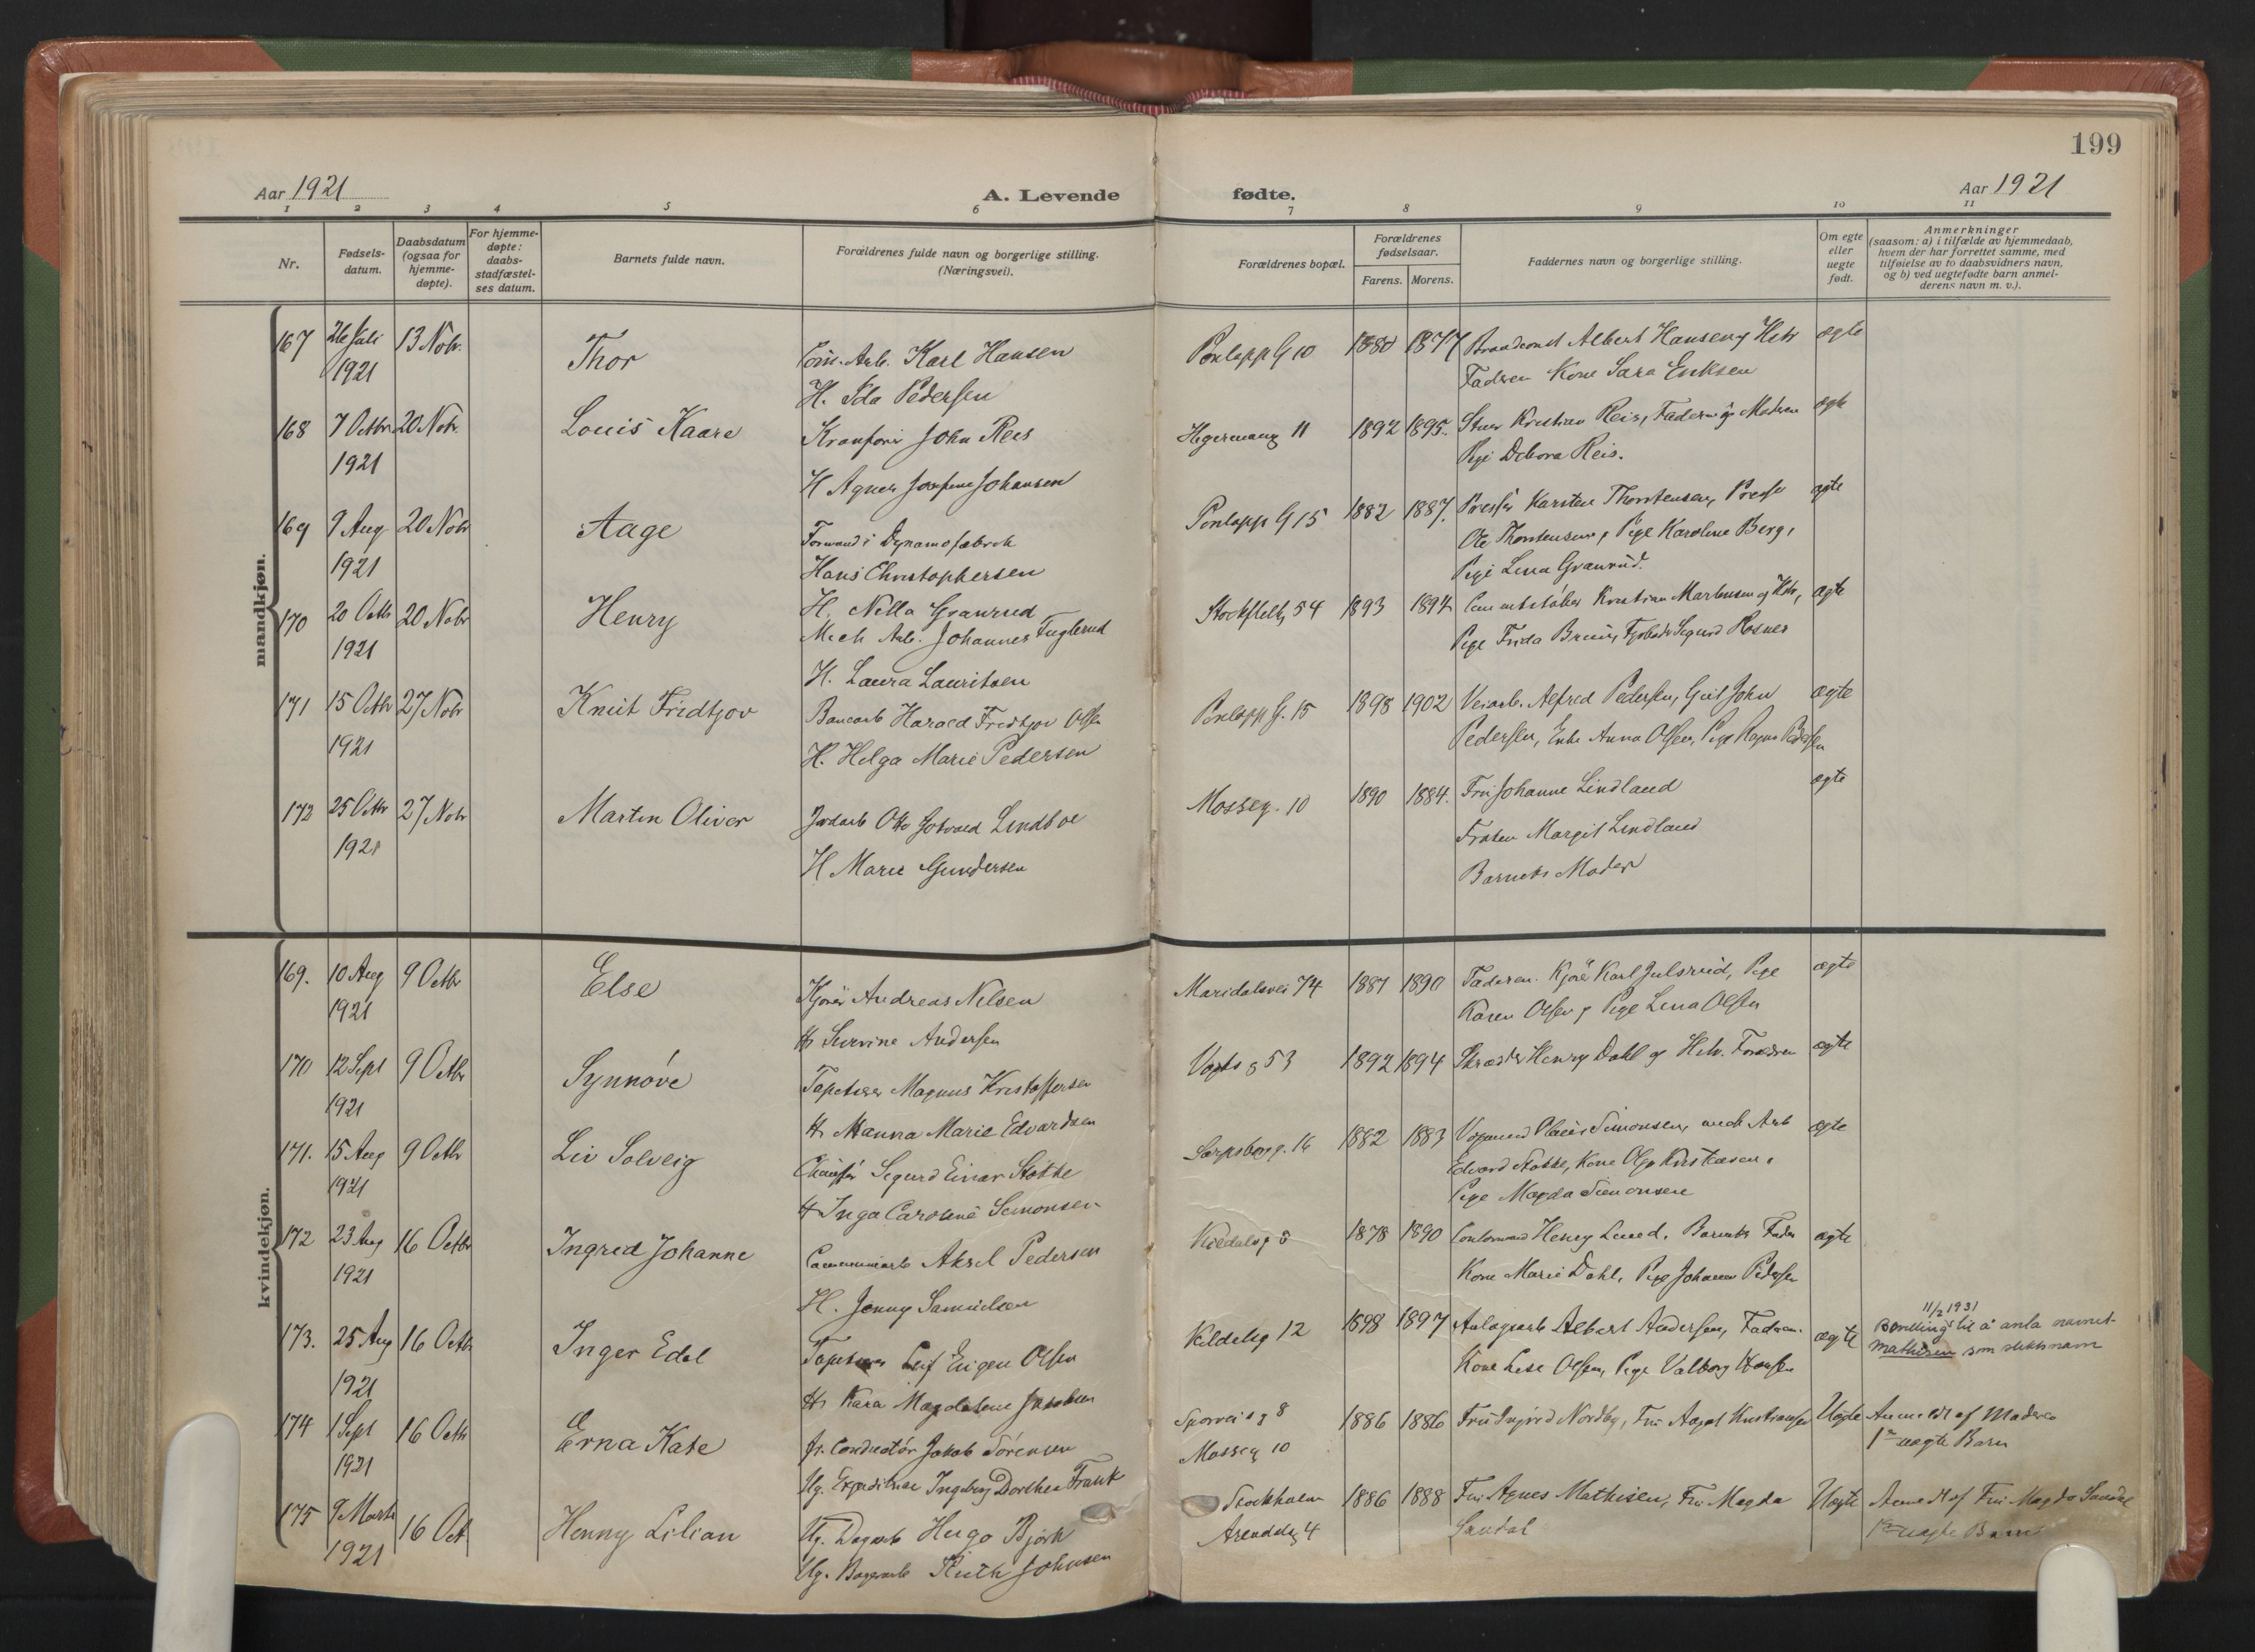 199
Aar 1921
A. Levende fødte.
Aar 1921
1 2 3 4 5 6 7 8 9 10 11
Nr.
Fødsels-
datum.
Daabsdatum
(ogsaa for
hjemme-
døpte).
For hjemme-
døpte:
daabs-
stadfæstel-
ses datum.
Barnets fulde navn.
Forældrenes fulde navn og borgerlige stilling.
(Næringsvei).
Forældrenes bopæl.
Forældrenes
fødselsaar.
Farens. Morens.
Faddernes navn og borgerlige stilling.
Om egte
eller
uegte
født.
Anmerkninger
(saasom: a) i tilfælde av hjemmedaab,
hvem der har forrettet samme, med
tilføielse av to daabsvidners navn,
og b) ved uegtefødte barn anmel-
derens navn m. v.).
mandkjøn.
167 26 Juli 13 Novbr. Thor Karl Hansen G 10 1880 1877 Albert Hansen og Hstr ægte
1921 H. Ida Pedersen Faderen Kone Sara Eriksen
168 7 Octbr 20 Novbr. Louis Kaare John Rees 11 1892 1895. Kristian Reis, Faderen og Moderen ægte
1921 H Agnes Johansen Pige Debora Reis.
169 9 Aug 20 Novbr Aage Formand i Dynamofabrik G 15 1882 1887. Karsten Thorstensen, ægte
1921 Hans Christophersen Ole Thorstensen, Pige Karoline Berg,
H. Nella Granrud Pige Lena Granrud.
170 20 Octbr 20 Novbr Henry Mek Arb. Johannes Fuglerud 54 1893 1894 Kristian Martinsen og Hstr, ægte
1921 H. Laura Lauritsen Pige Frida Sigurd
171 15 Octbr 27 Novbr Knut Fridtjov Harald Fredtjov Olsen G. 15 1898 1902 Veiarb. Alfred Pedersen, John ægte
1921 H. Helga Marie Pedersen Pedersen, Enke Anna Olsen, Pige Pedersen
172 25 Octbr 27 Novbr Martin Oliver Jordarb Otto Lindboe Mosseg. 10 1890 1884. Fru Johanne Lindland ægte
1921 H Marie Gundersen Frøken Margit Lindland
Barnets Moder
kvindekjøn.
169. 10 Aug 9 Octbr Else Kjører Andreas Nilsen Maridalsvei 74 1887 1890 Faderen. Kjører Karl Julsrud, Pige ægte
1921 H Severine Andersen Karen Olsen, Pige Lena Olsen
170 12 Sept 9 Octbr Synnøve Tapetserer Magnus Kristoffersen Vogts g 53 1892 1894 Skræder Henry Dahl og Hstr. Forældrene ægte
1921 H. Hanna Marie Edvardsen
171. 15 Aug 9 Octbr Liv Solveig Chauffør Sigurd Einar Stokke Sarpsborg g. 16 1882 1883 Simonsen, mek Arb ægte
1921 H Inga Caroline Simonsen Edvard Stokke, Kone Olga Kristiansen,
Pige Magda Simonsen
172 23 Aug 16 Octbr Ingrid Johanne Aksel Pedersen 1878 1890 Henry Lund, Barnets Fader ægte
1921 H. Jenny Samuelsen Kone Marie Dahl, Pige Johanne Pedersen
173. 25 Aug 16 Octbr Inger Edel Tapetserer Leif Eugen Olsen 12 1898 1897 Anlagsarb Albert Andersen, Faderen. ægte
1921 H. Kara Magdalene Jacobsen Kone Lise Olsen, Pige Valborg Hansen
11/2 1931
Bevilling til å anta navnet
Mathisen som slektsnavn
174 1 Sept 16 Octbr Erna Kate fr. Conductør Jakob Sørensen Sporveisg 8 1886 1886 Fru Ingrid Nordby, Fru Aagot Kristiansen Uægte Anmeldt af Moderen
1921 Ug. Ingeborg Dorthea Frank Mosseg 10 1ste uægte Barn
175 9 Marts 16 Oct Henny Lilian Ug. Hugo Bjørk Stockholm 1886 1888 Fru Agnes Mathisen, Fru Magda Uægte Anmeldt af Fru Magda Sandal
1921 Ug. Ruth Johnsen Arendalsg 4 Sandal 1ste uægte Barn